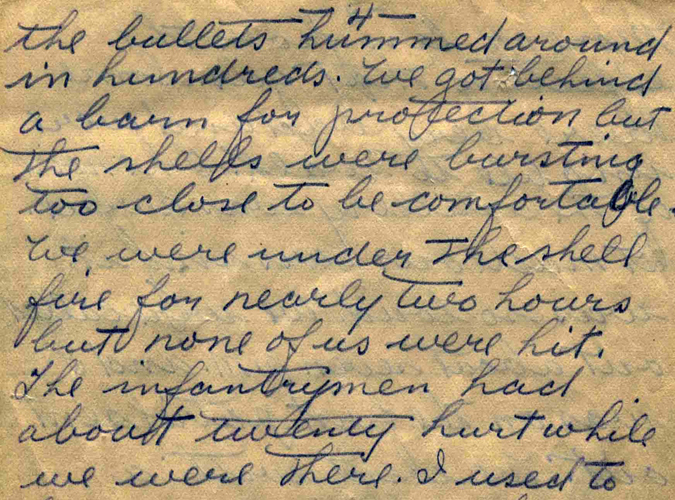 4
the bullets hummed around
in hundreds. We got behind
a barn for protection but
the shells were bursting
too close to be comfortable.
We were under the shell
fire for nearly two hours
but none of us were hit.
The infantrymen had
about twenty hurt while
we were there. I used to